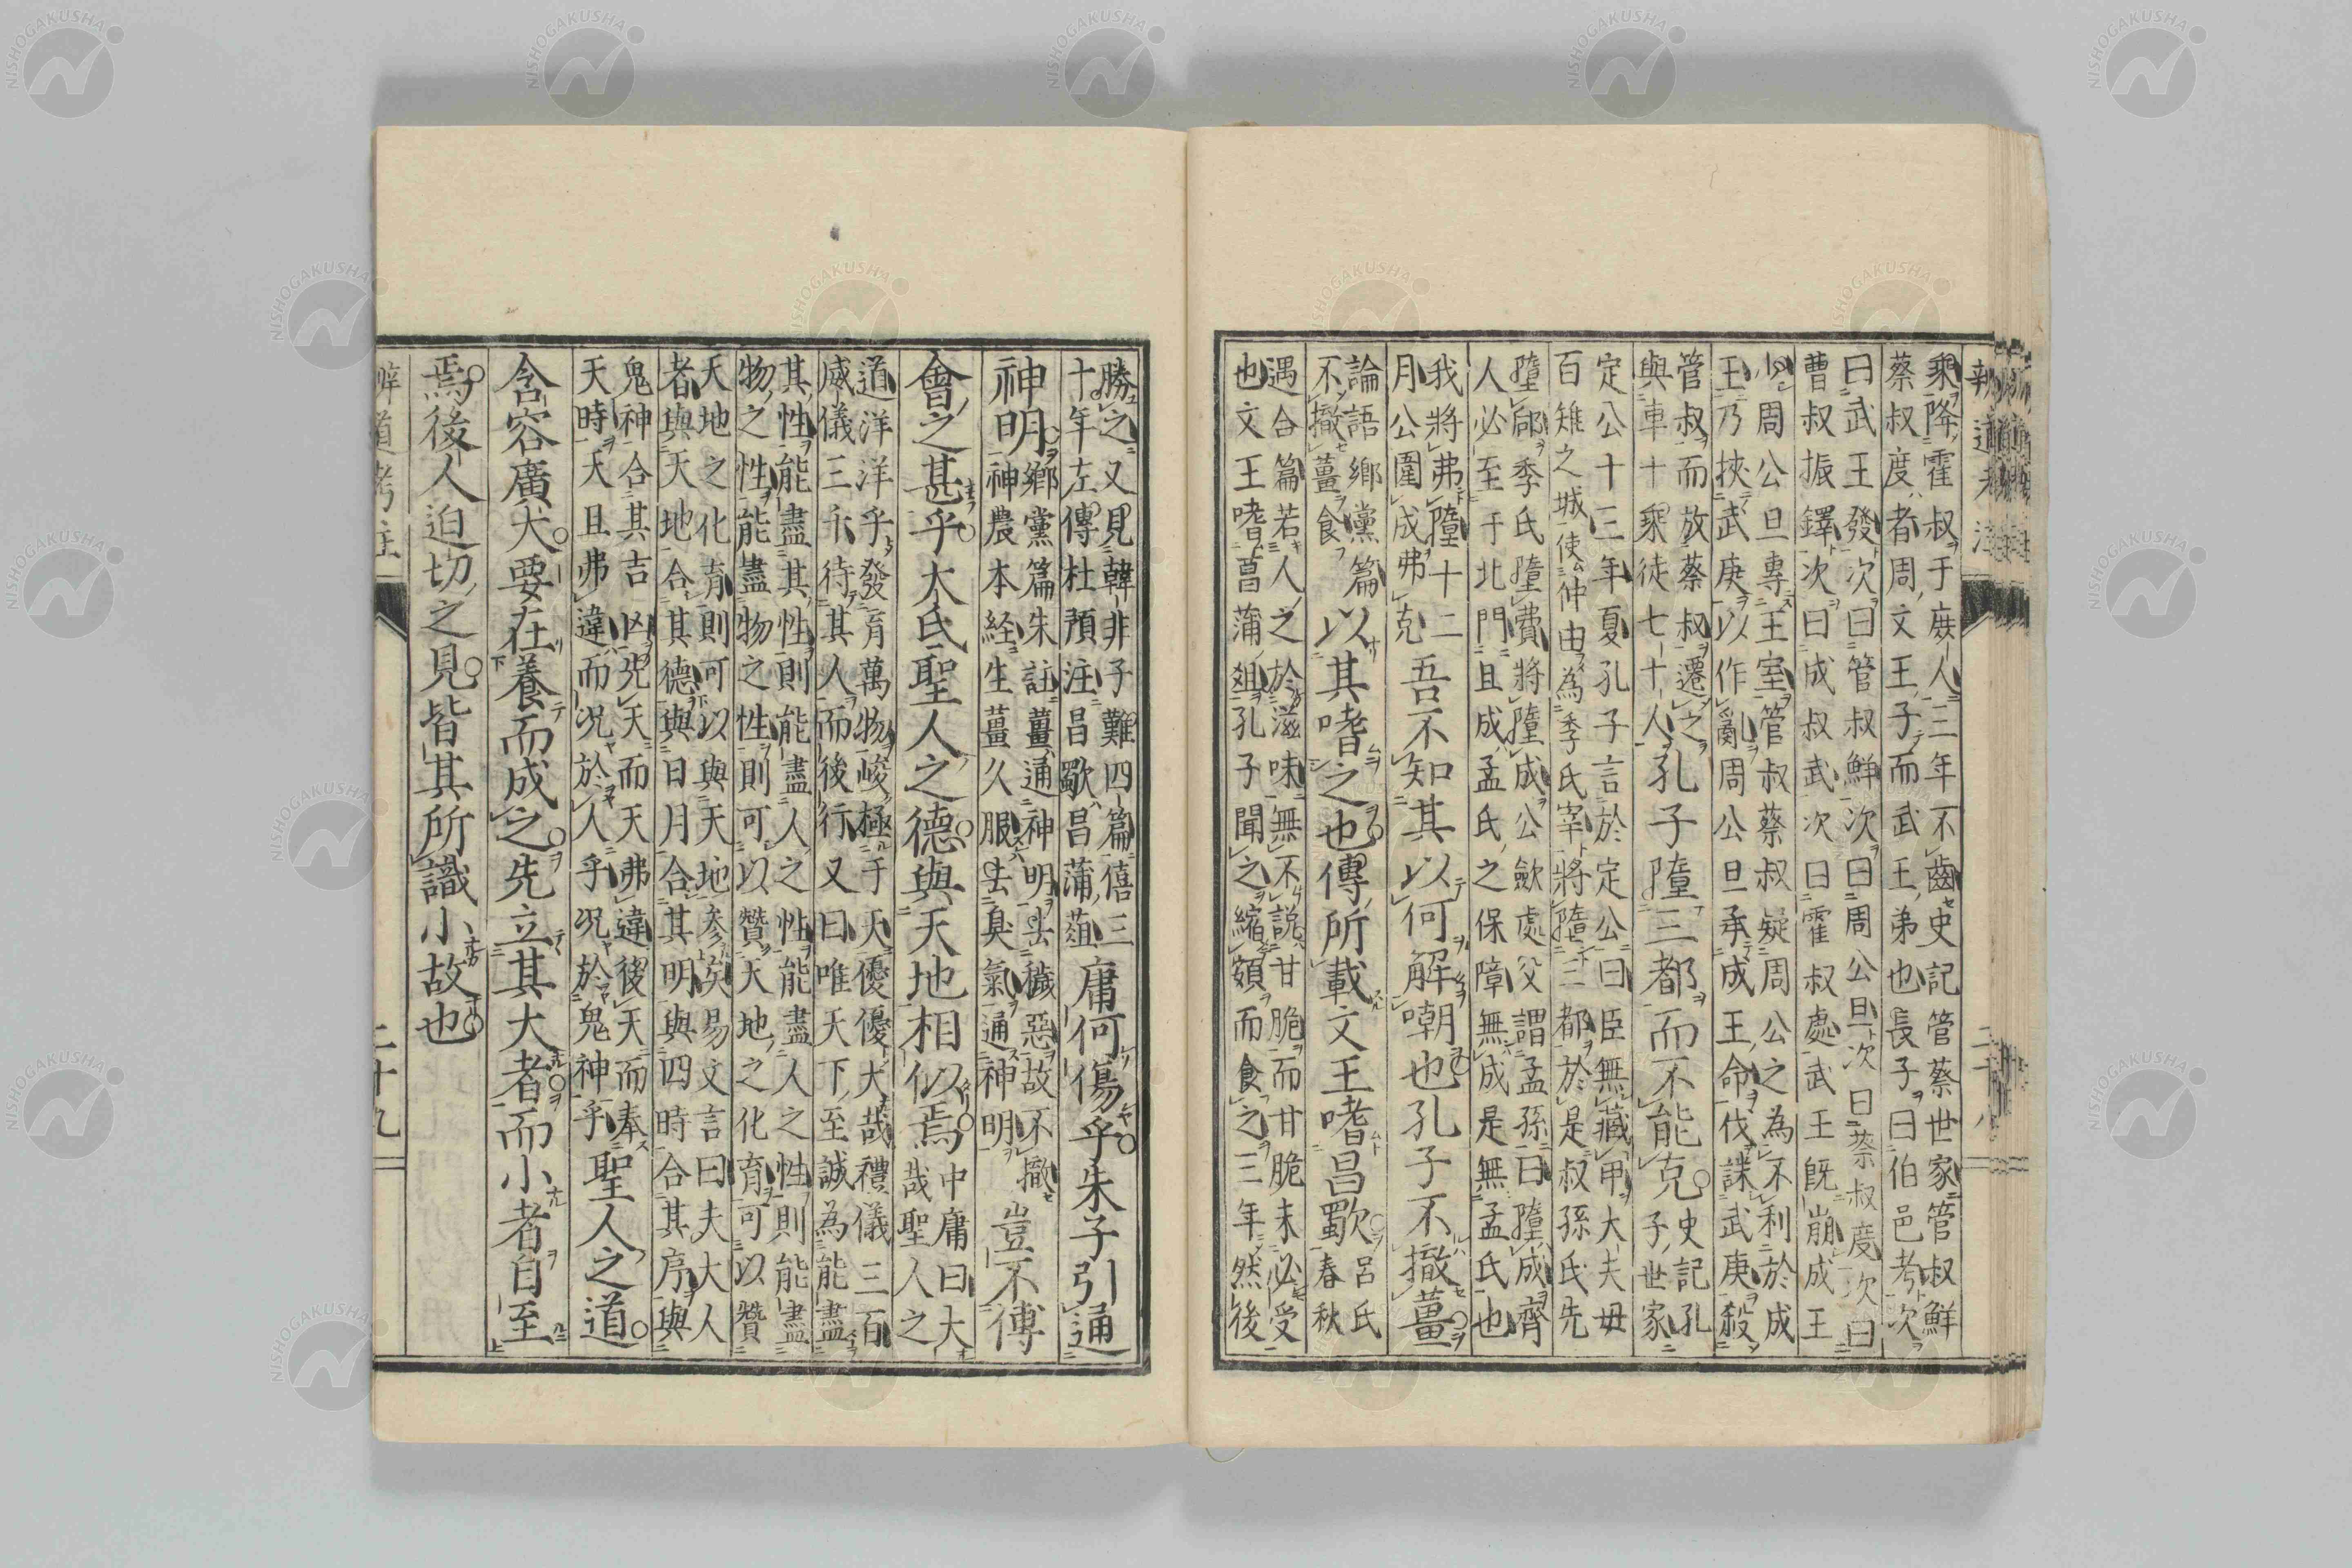 辨道考注
二十八
乘降霍叔于庶人三年不齒史記管蔡世家管叔鮮
蔡叔度者周文王子而武王弟也長子曰伯邑考次
曰武王發次曰管叔鮮次曰周公旦次曰蔡叔度次曰
曹叔振鐸次曰成叔武次曰霍叔處武王既崩成王
少周公旦專王室管叔蔡叔疑周公之為不利於成
王乃挾武庚以作亂周公旦承成王命伐誅武庚殺
管叔而放蔡叔遷之
與車十乘徒七十人
孔子墮三都而不能克
史記孔
子世家
定公十三年夏孔子言於定公曰臣無藏甲大夫毋
百雉之城使仲由為季氏宰將墮三都於是叔孫氏先
墮郈季氏墮費將墮成公歛處父謂孟孫曰墮成齊
人必至于北門且成孟氏之保障無成是無孟氏也
我將弗墮十二
月公圍成弗克
吾不知其以何解嘲也孔子不撤薑
論語鄉黨篇
不撤薑食
以其嗜之也傳所載文王嗜昌歜
呂氏
春秋
遇合篇若人之於滋味無不説甘脆而甘脆未必受
也文王嗜菖蒲俎孔子聞之縮頞而食之三年然後
勝之又見韓非子難四篇僖三
十年左傳杜預注昌歜昌蒲葅
庸何傷乎朱子引通
神明
鄉黨篇朱註薑通神明去穢惡故不撤
神農本経生薑久服去臭氣通神明
豈不傅
會之甚乎大氐聖人之德與天地相似焉
中庸曰大
哉聖人之
道洋洋乎發育萬物峻極于天優優大哉禮儀三百
威儀三千待其人而後行又曰唯天下至誠為能盡
其性能盡其性則能盡人之性能盡人之性則能盡
物之性能盡物之性則可以贊天地之化育可以贊
天地之化育則可以與天地參矣易文言曰夫大人
者與天地合其德與日月合其明與四時合其序與
鬼神合其吉凶先天而天弗違後天而奉
天時天且弗違而况於人乎况於鬼神乎
聖人之道
含容廣大要在養而成之先立其大者而小者自至
焉後人迫切之見皆其所識小故也
辨道考注
二十九